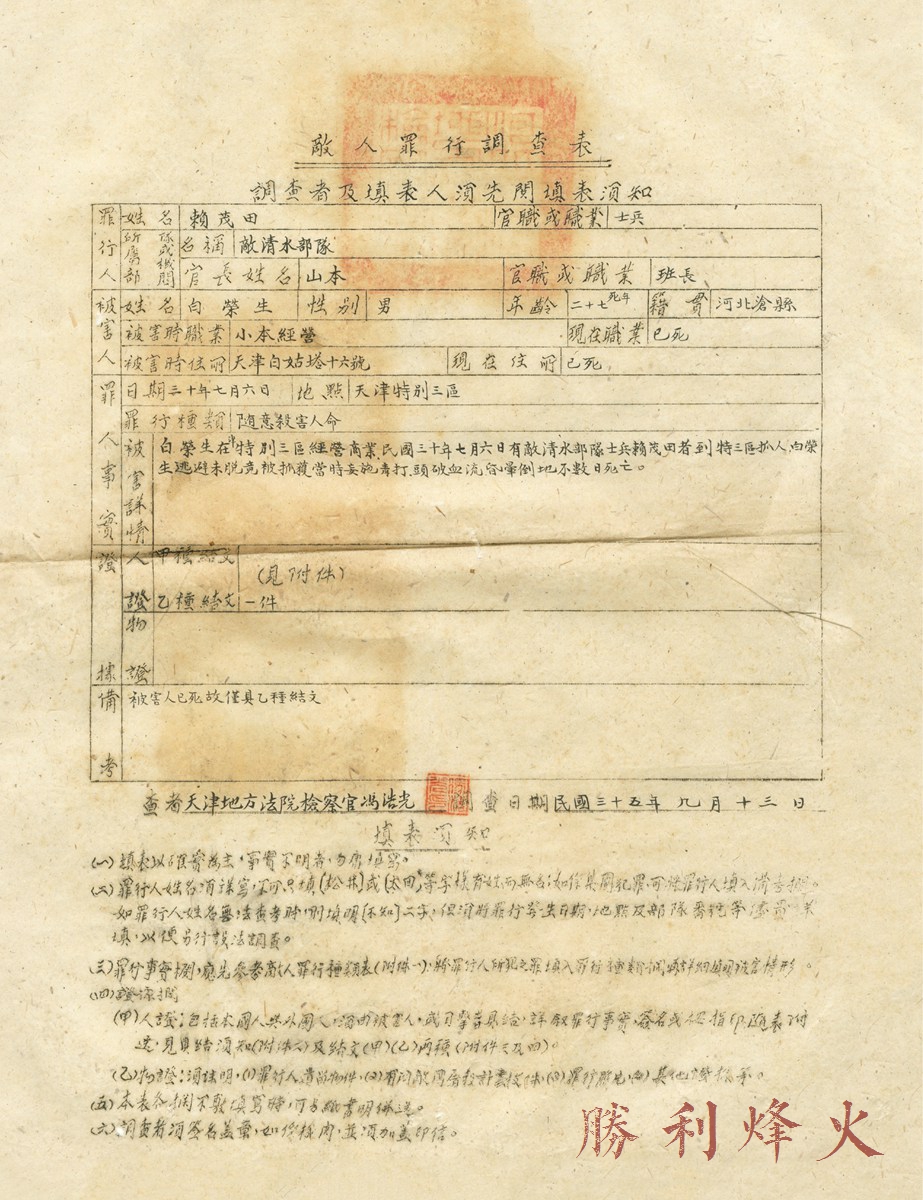 敵人罪行調查表
調查者及填表人須先閱填表須知
罪行人 姓名 賴茂田 官職或職業 士兵
所屬部隊或機關 名稱 敵清水部隊
官長姓名 山本 官職或職業 班長
被害人 姓名 白榮生 性別 男 年齡 二十七死年 籍貫 河北滄縣
被害時職業 小本經營 現在職業 已死
被害時住所 天津白姑塔十六號 現在住所 已死
罪人事實 日期 三十年七月六日 地點 天津特別三區
罪行種類 隨意殺害人命
被害詳情 白榮生在特別三區經營商業民國三十年七月六日有敵清水部隊士兵賴茂田者到特三區抓人白榮
生逃避未脫竟被抓獲當時妄施毒打頭破血流昏暈倒地不數日死亡。
證據 人證 甲種結文 (見附件)
乙種結文 一件
物證
備考 被害人已死故僅具乙種結文
查者天津地方法院檢察官馮浩光 調查日期民國三十五年九月十三日
填表須知
(一)填表以確實為主,事實不明者,勿庸填寫。
(二)罪行人姓名須詳寫,不可只填(松井)或(太田)等字樣有姓而無名
如罪行人姓名無法查考時,則填明(不知)二字,但須將罪行發生日期,地點及部隊番號等
填,以便另行設法調查。
(三)罪行事實欄,應先參考敵人罪行種類表(附件一),將罪行人所犯之罪填入罪行種類欄
(四)證據欄
(甲)人證:包括本國人與外國人,須由被害人,或目擊者具結,詳敘罪行事實,簽名或指印,隨表附
送,見具結須知(附件二)及結文(甲)(乙)兩種(附件三及四)。
(乙)物證:須註明,(1)罪行人遺落物件,(2)有關敵國屠殺計畫文件,(3)罪行照片,(4)其他證據等。
(五)本表各欄不敷填寫時,可另紙書明附送。
(六)調查者須簽名蓋章,如係機關,並須加蓋印信。
勝利烽火